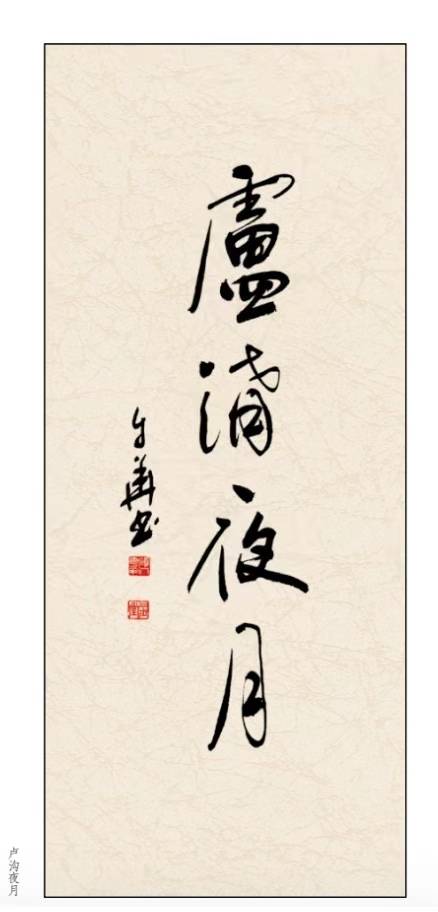 盧溝夜月
卢沟夜月